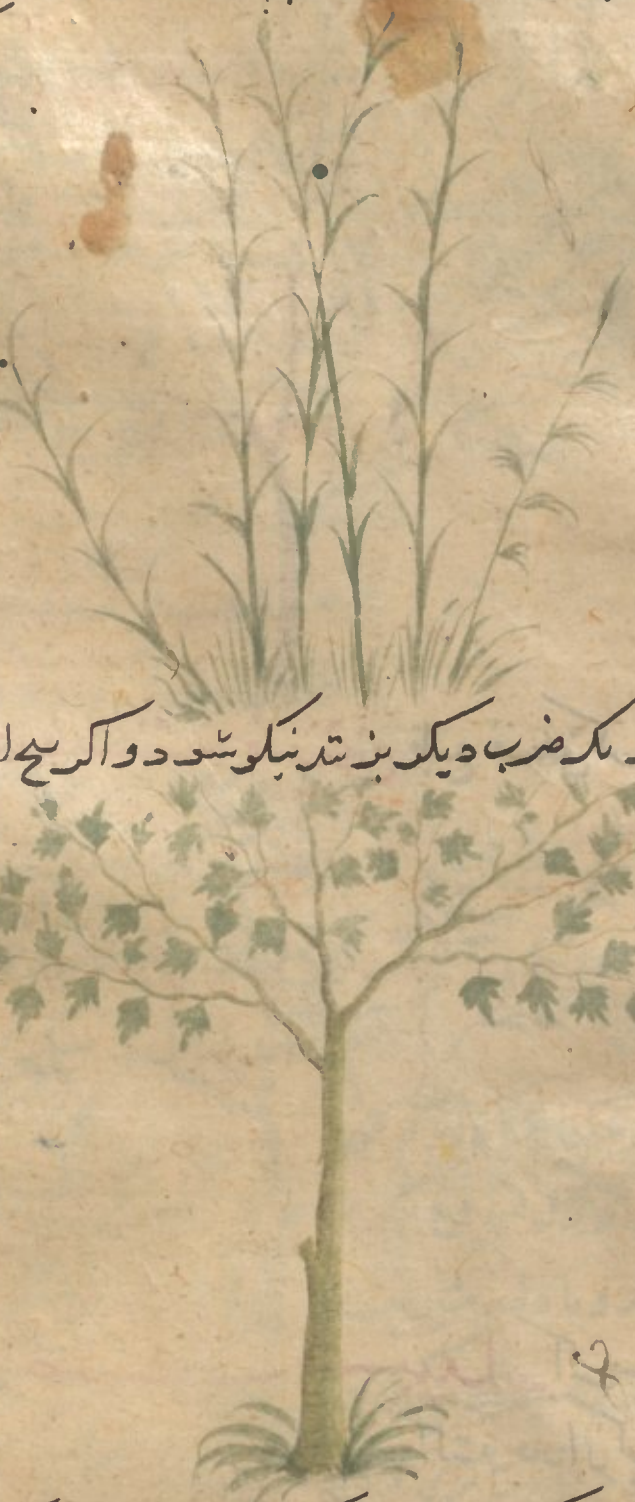 یک ضرب دیکر بزنند نیکو شود و اکر بیخ